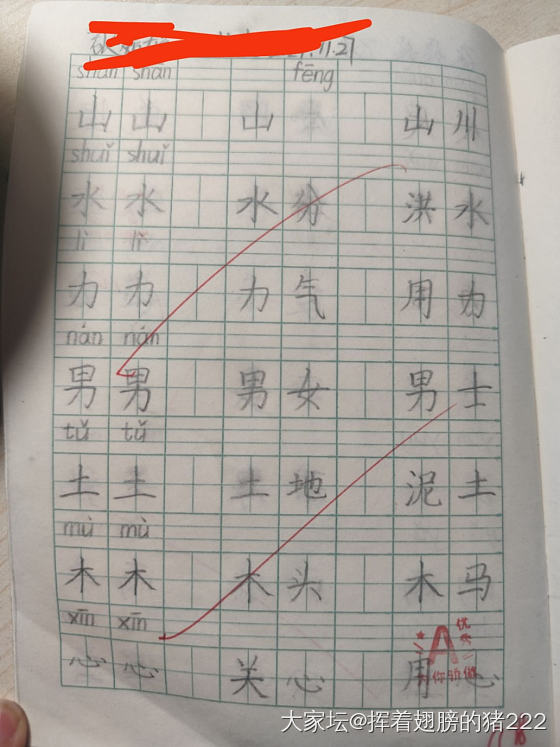 11.27
shān shān fēng
山 山 山 山 川
shuǐ shuǐ
水 水 水 分 洪 水
lì lì
力 力 力 气 用 力
nán nán
男 男 男 女 男 士
tǔ tǔ
土 土 土 地 泥 土
mù mù
木 木 木 头 木 马
xīn xīn
心 心 关 心 用 心
A
优秀
你真棒
大家坛@挥着翅膀的猪222